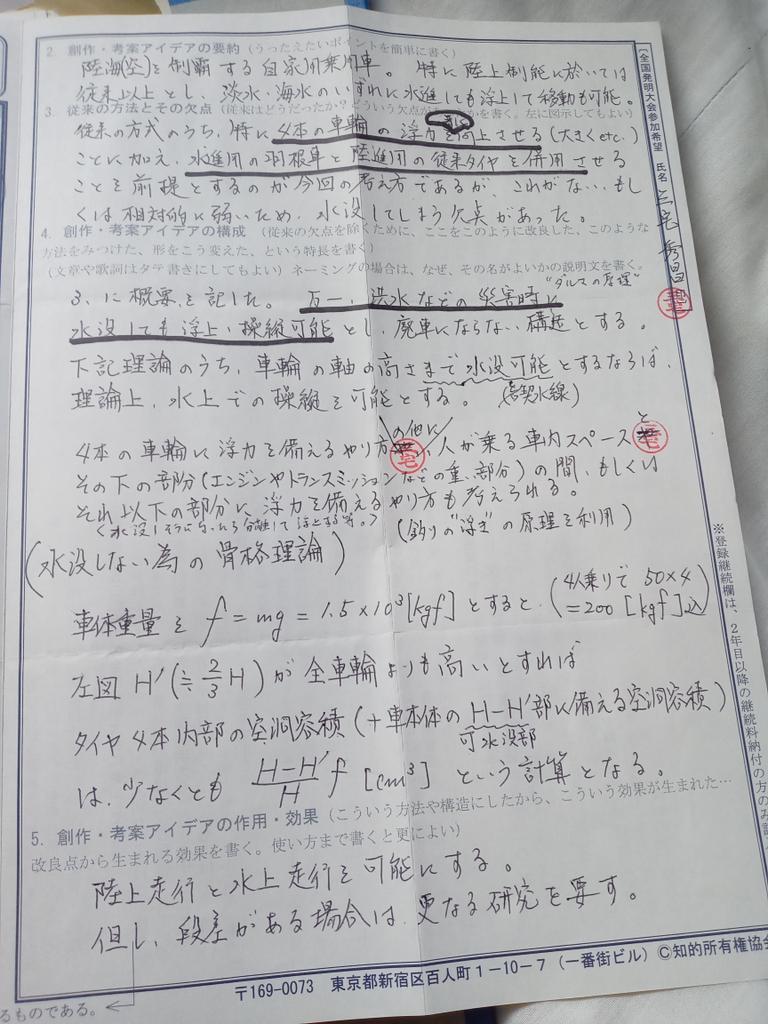 2. 創作・考案アイデアの要約（うったえたいポイントを簡単に書く）
陸海(空)を制覇する自家用乗用車。特に陸上制能に於いては
従来以上とし、淡水・海水のいずれに水進しても浮上して移動も可能。
3. 従来の方法とその欠点（従来はどうだったか？どういう欠点が を書く。左に図示してもよい）
従来の方式のうち、特に4本の車輪の浮力を向上させる(大きくetc.)
ことに加え、水進用の羽根車と陸進用の従来タイヤを併用させる
ことを前提とするのが今回の考え方であるが、これがない、もし
くは相対的に弱いため、水没してしまう欠点があった。
4. 創作・考案アイデアの構成（従来の欠点を除くために、ここをこのように改良した、このような
方法をみつけた、形をこう変えた、という特長を書く）
（文章や歌詞はタテ書きにしてもよい）ネーミングの場合は、なぜ、その名がよいかの説明文を書く。
"ダルマの原理"
3、に概要を記した。万一、洪水などの災害時に
水没しても浮上、操縦可能とし、廃車にならない構造とする。
下記理論のうち、車輪の軸の高さまで水没可能とするならば、
理論上、水上での操縦を可能とする。(喫水線)
4本の車輪に浮力を備えるやり方の他に、人が乗る車内スペースと
その下の部分(エンジンやトランスミッションなどの重い部分)の間、もしくは
それ以下の部分に浮力を備えるやり方も考えられる。
(釣りの"浮き"の原理を利用)
(水没しない為の骨格理論)
車体重量を f=mg=1.5×10³[kgf]とすると、(4人乗りで 50×4
=200[kgf]込)
左図 H'(≒2/3H)が全車輪よりも高いとすれば
タイヤ4本内部の空洞容積(+車本体のH-H'部に備える空洞容積)
可水没部
は、少なくとも (H-H')/H f [cm³] という計算となる。
5. 創作・考案アイデアの作用・効果（こういう方法や構造にしたから、こういう効果が生まれた…
改良点から生まれる効果を書く。使い方まで書くと更によい）
陸上走行と水上走行を可能にする。
但し、段差がある場合は、更なる研究を要す。
〒169-0073 東京都新宿区百人町1-10-7（一番街ビル）©知的所有権協会
るものである。←
〔全国発明大会参加希望 氏名 三宅秀昌
三宅
※登録継続欄は、2年目以降の継続料納付の方のみ